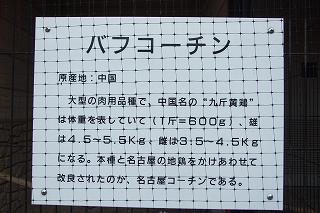 バフコーチン
原産地:中国
大型の肉用品種で、中国名の“九斤黄鶏”
は体重を表していて(1斤=600g)、雄
は4.5-5.5Kg、雌は3.5-4.5Kg
になる。本種と名古屋の地鶏をかけあわせて
改良されたのが、名古屋コーチンである。